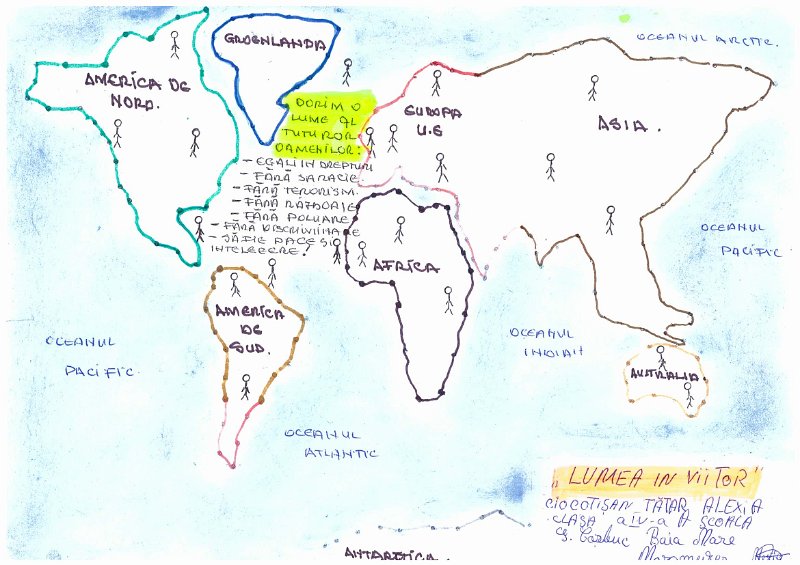 OCEANUL ARCTIC.
GROENLANDA
AMERICA DE
NORD.
DORIM O
LUME AL
TUTUROR
OAMENILOR:
- EGALI IN DREPTURI
- FĂRĂ SARACIE.
- FĂRĂ TERORISM.
- FĂRĂ RĂZBOAIE
- FĂRĂ POLUARE
- FĂRĂ DISCRIMINARE
- SĂ FIE PACE SI
INTELEGERE!
EUROPA
U.E
ASIA.
AFRICA
AMERICA
DE
SUD.
OCEANUL
PACIFIC
OCEANUL
PACIFIC.
OCEANUL
INDIAN
AUSTRALIA
OCEANUL
ATLANTIC
ANTARCTICA.
„LUMEA IN VIITOR"
CIOCOTIȘAN TĂTAR ALEXIA
CLASA a IV-a A ȘCOALA
G. Coșbuc Baia Mare
Maramureș